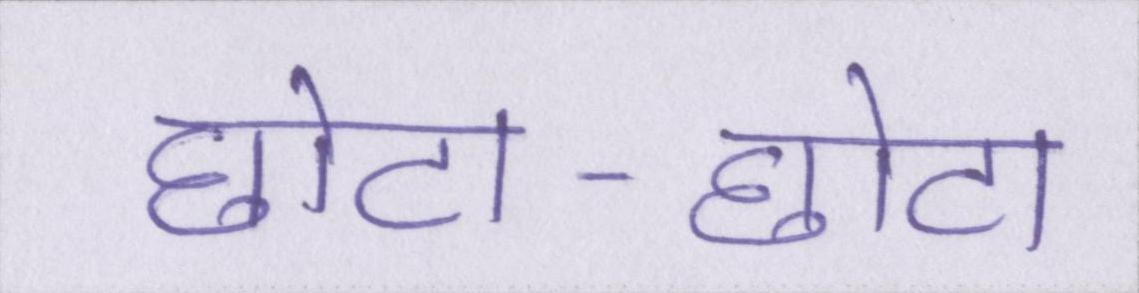 छोटा-छोटा